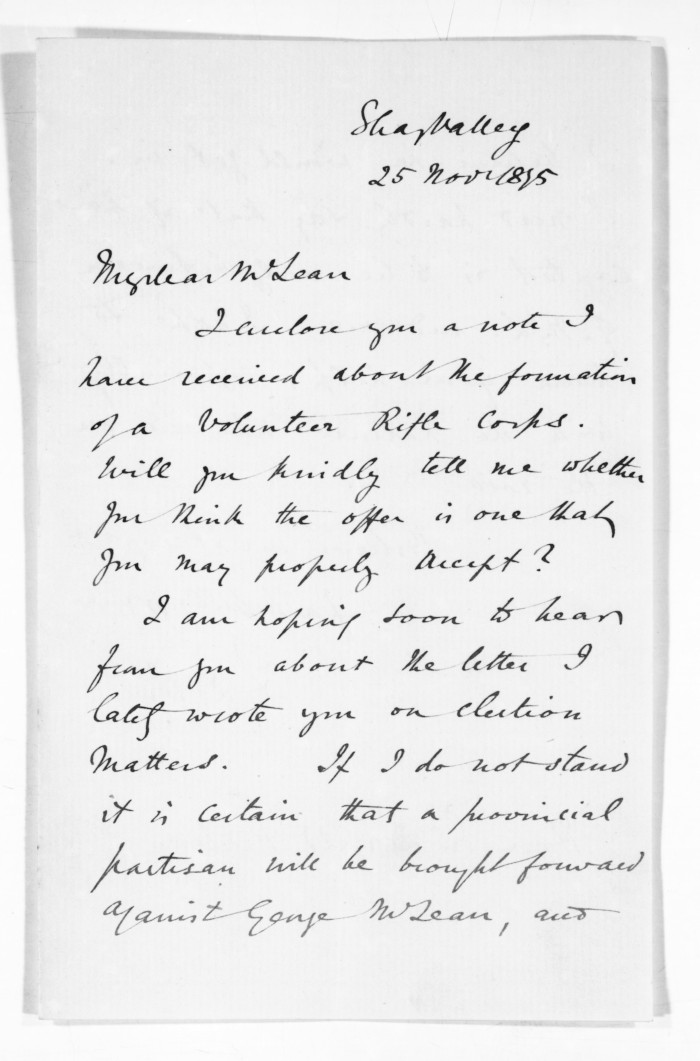 Shag Valley
25 Novr 1875
My dear McLean
I enclose you a note I
have received about the formation
of a Volunteer Rifle Corps.
Will you kindly tell me whether
you think the offer is one that
you may properly accept?
I am hoping soon to hear
from you about the letter I
lately wrote you on election
matters. If I do not stand
it is certain that a provincial
partisan will be brought forward
against George McLean, and